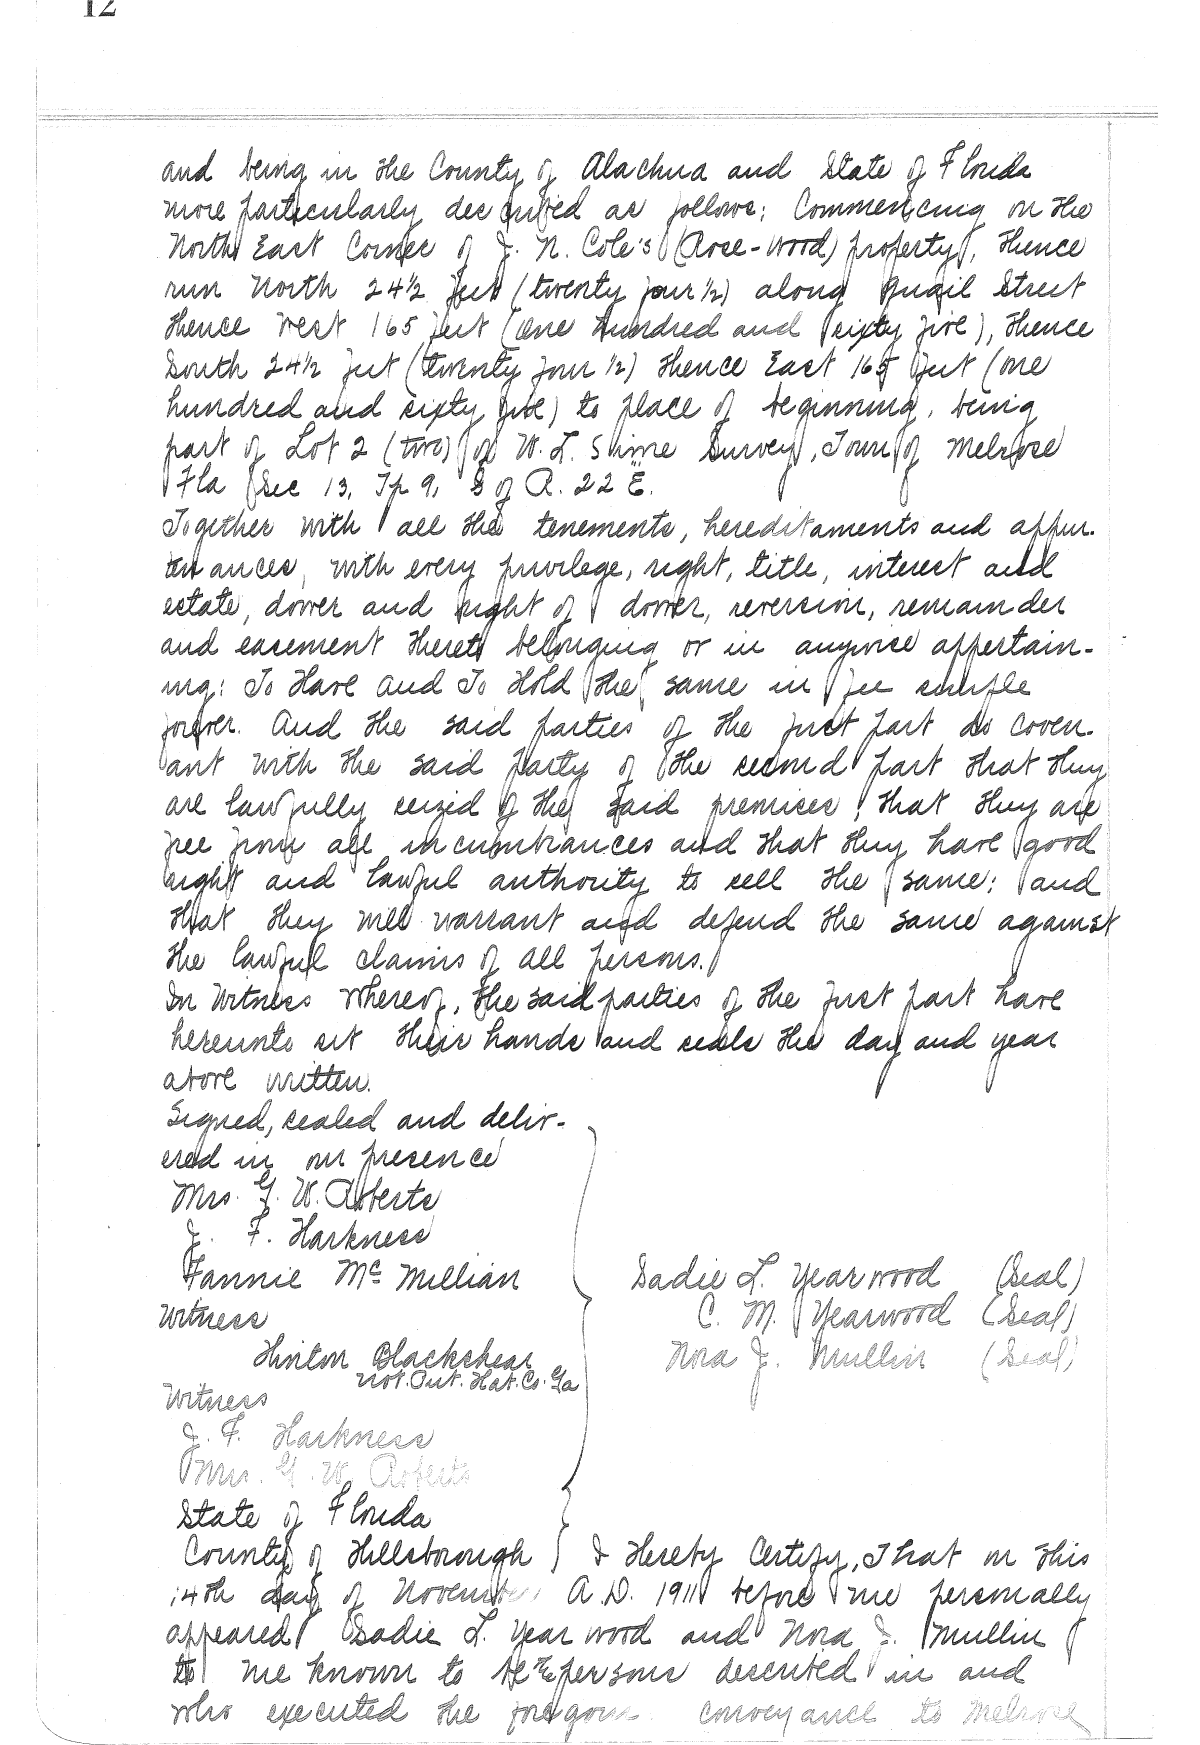 12
and being in the County of Alachua and State of Florida
more particularly described as follows; Commencing on the
North East Corner of J. N. Cole's (Rose-Wood) property, thence
run North 24½ feet (twenty four ½) along Quail Street
thence West 165 feet (one hundred and sixty five), thence
South 24½ feet (twenty four ½) thence East 165 feet (one
hundred and sixty five) to place of beginning, being
part of Lot 2 (two) of W. L. Survey, Town of Melrose
Fla Sec 13, Tp 9, S of R. 22 E.
Together with all the tenements, hereditaments and appur-
tenances, with every privilege, right, title, interest and
estate, dower and right of dower, reversion, remainder
and easement thereto belonging or in anywise appertain-
ing: To Have and To Hold the same in fee simple
forever. And the said parties of the first part do coven-
ant with the said party of the second part that they
are lawfully seized of the said premises, that they are
free from all incumbrances and that they have good
right and lawful authority to sell the same; and
that they will warrant and defend the same against
the lawful claims of all persons.
In Witness Whereof, the said parties of the first part have
hereunto set their hands and seals the day and year
above written.
Signed, sealed and deliv-
ered in our presence
Mrs. G. W. Roberts
J. F. Harkness
Fannie McMillian
Sadie L. Yearwood (Seal)
Witness
C. M. Yearwood (Seal)
Hinton Blackshear
Nora J. Mullin (Seal)
Not. Put. Hat. Co. Ga
Witness
J. F. Harkness
Mrs. G. W. Roberts
State of Florida
County of Hillsborough } I Hereby Certify, That on this
14th day of November A.D. 1911 before me personally
appeared Sadie L. Yearwood and Nora J. Mullin
to me known to be the persons descuted in and
who executed the foregoin conveyance to Melrose